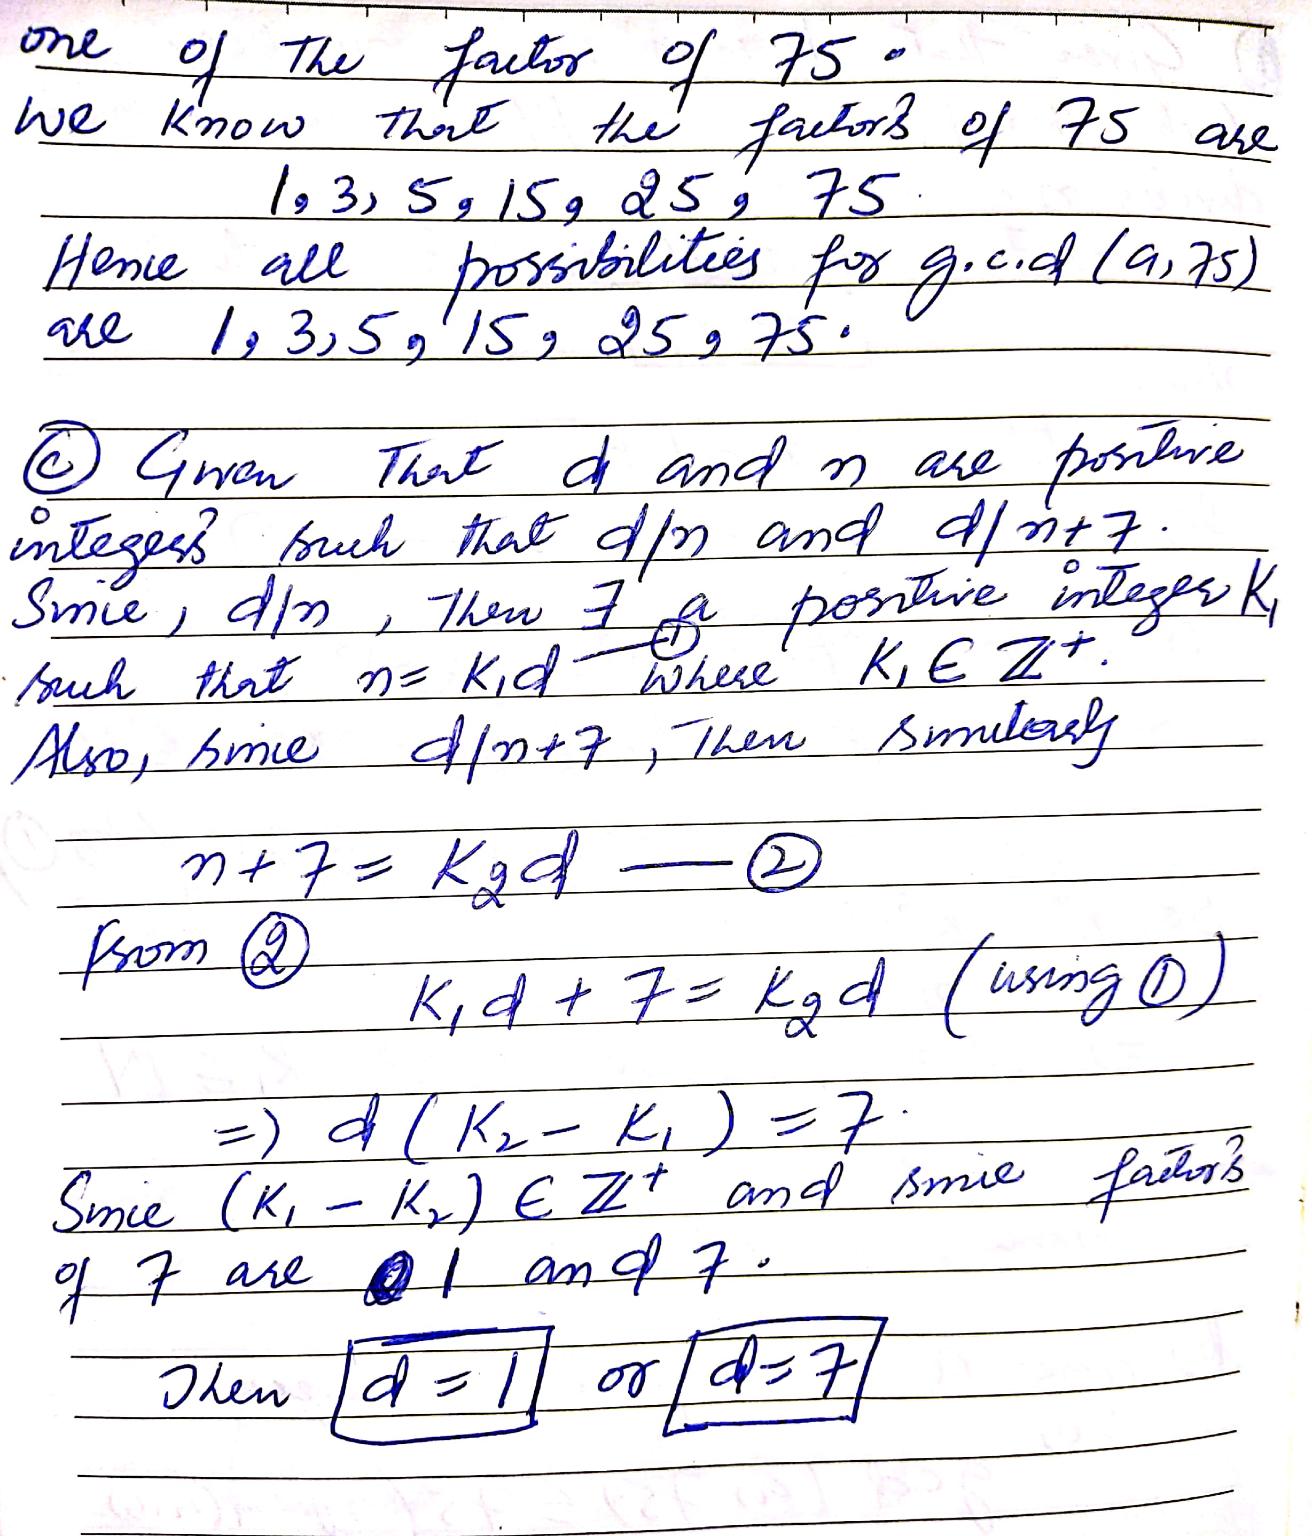 one of the factor of 75.
we know that the factors of 75 are
1, 3, 5, 15, 25, 75.
Hence all possibilities for g.c.d (a, 75)
are 1, 3, 5, 15, 25, 75.
(c) Given that d and n are positive
integers such that d/n and d/n+7.
Since, d/n, Then ∃ a positive integer K₁
such that n = K₁d —① where K₁ ∈ ℤ⁺.
Also, since d/n+7, Then similarly
n+7 = K₂d —②
from ②
K₁d + 7 = K₂d (using ①)
=) d(K₂ - K₁) = 7.
Since (K₁ - K₂) ∈ ℤ⁺ and since factors
of 7 are 1 and 7.
Then d = 1 or d = 7